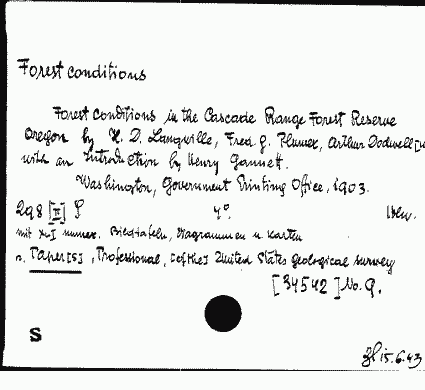 Forest conditions
Forest conditions in the Cascade Range Forest Reserve
Oregon by H. D. Langville, Fred G. Plumer, Arthur Dodwell
with an Introduction by Henry Gannett.
Washington, Government Printing Office, 1903.
298 [II] S 4°.
mit numer. Bildtafeln, Diagrammen u. Karten
s. Paper[s], Professional, [of the] United States geological survey
[34542] No. 9.
S
15.6.43